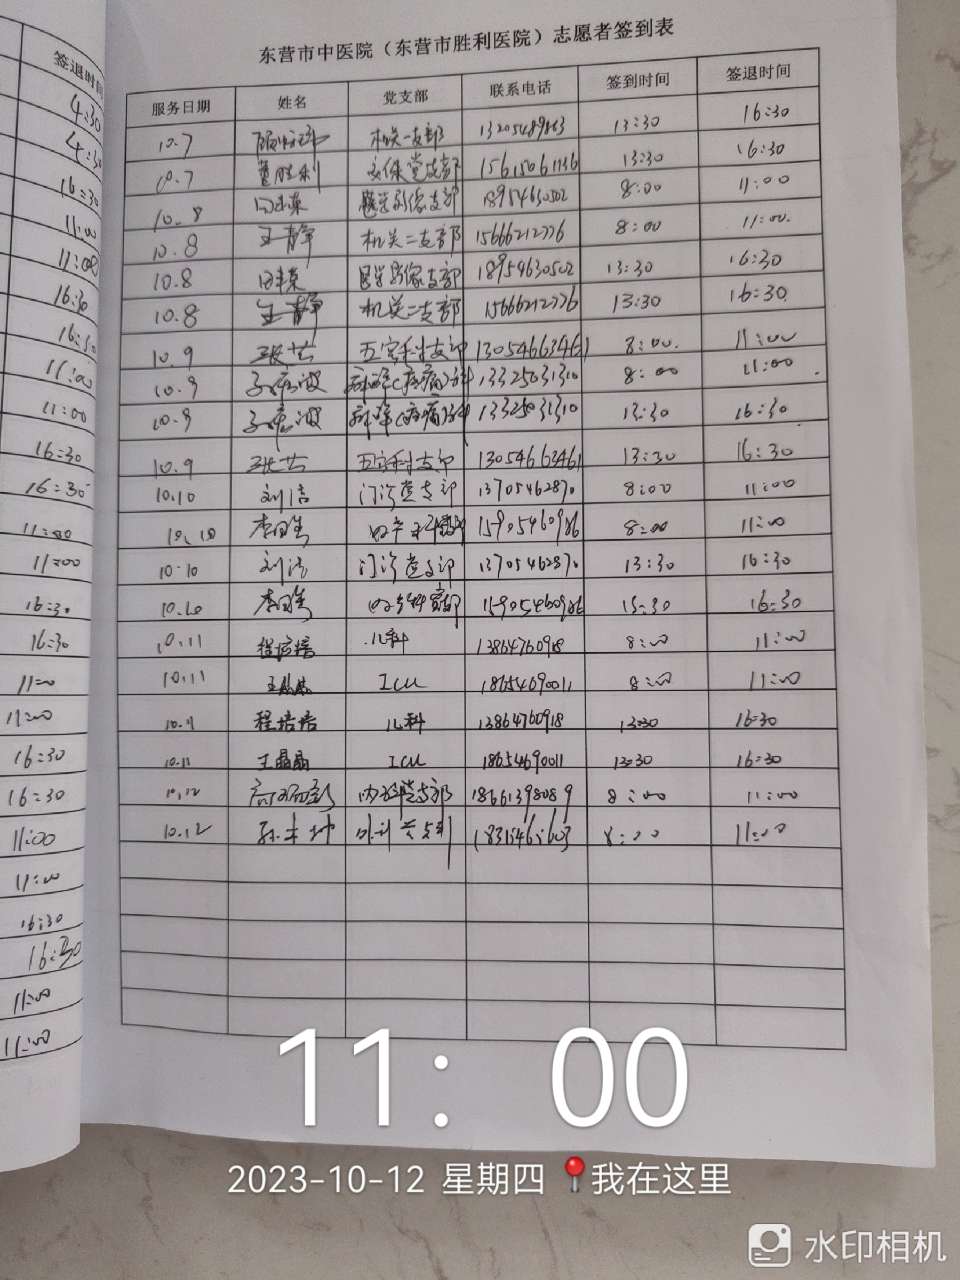 签退时间
4:30
4:30
16:30
11:00
11:00
16:30
11:00
11:00
16:30
16:30
11:00
11:00
16:30
16:30
11:00
11:00
16:30
16:30
11:00
11:00
16:30
16:30
11:00
11:00
东营市中医院（东营市胜利医院）志愿者签到表
服务日期 姓名 党支部 联系电话 签到时间 签退时间
10.7 机关一支部 13:30 16:30
10.7 党支部 15615061136 13:30 16:30
10.8 医学影像支部 18954630502 8:00 11:00
10.8 王静 机关二支部 15666212776 8:00 11:00
10.8 医学影像支部 18954630502 13:30 16:30
10.8 王静 机关二支部 15666212776 13:30 16:30
10.9 张芸 五官科支部 13054663461 8:00 11:00
10.9 13325031310 8:00 11:00
10.9 13325031310 13:30 16:30
10.9 张芸 五官科支部 13054663461 13:30 16:30
10.10 刘洁 门诊党支部 13705462870 8:00 11:00
10.10 15905460986 8:00 11:00
10.10 刘洁 门诊党支部 13705462870 13:30 16:30
10.10 15905460986 13:30 16:30
10.11 程培培 儿科 13864760918 8:00 11:00
10.11 王晶晶 ICU 18654690011 8:00 11:00
10.11 程培培 儿科 13864760918 13:30 16:30
10.11 王晶晶 ICU 18654690011 13:30 16:30
10.12 内科党支部 18661398089 8:00 11:00
10.12 8:00 11:00
11:00
2023-10-12 星期四 我在这里
水印相机